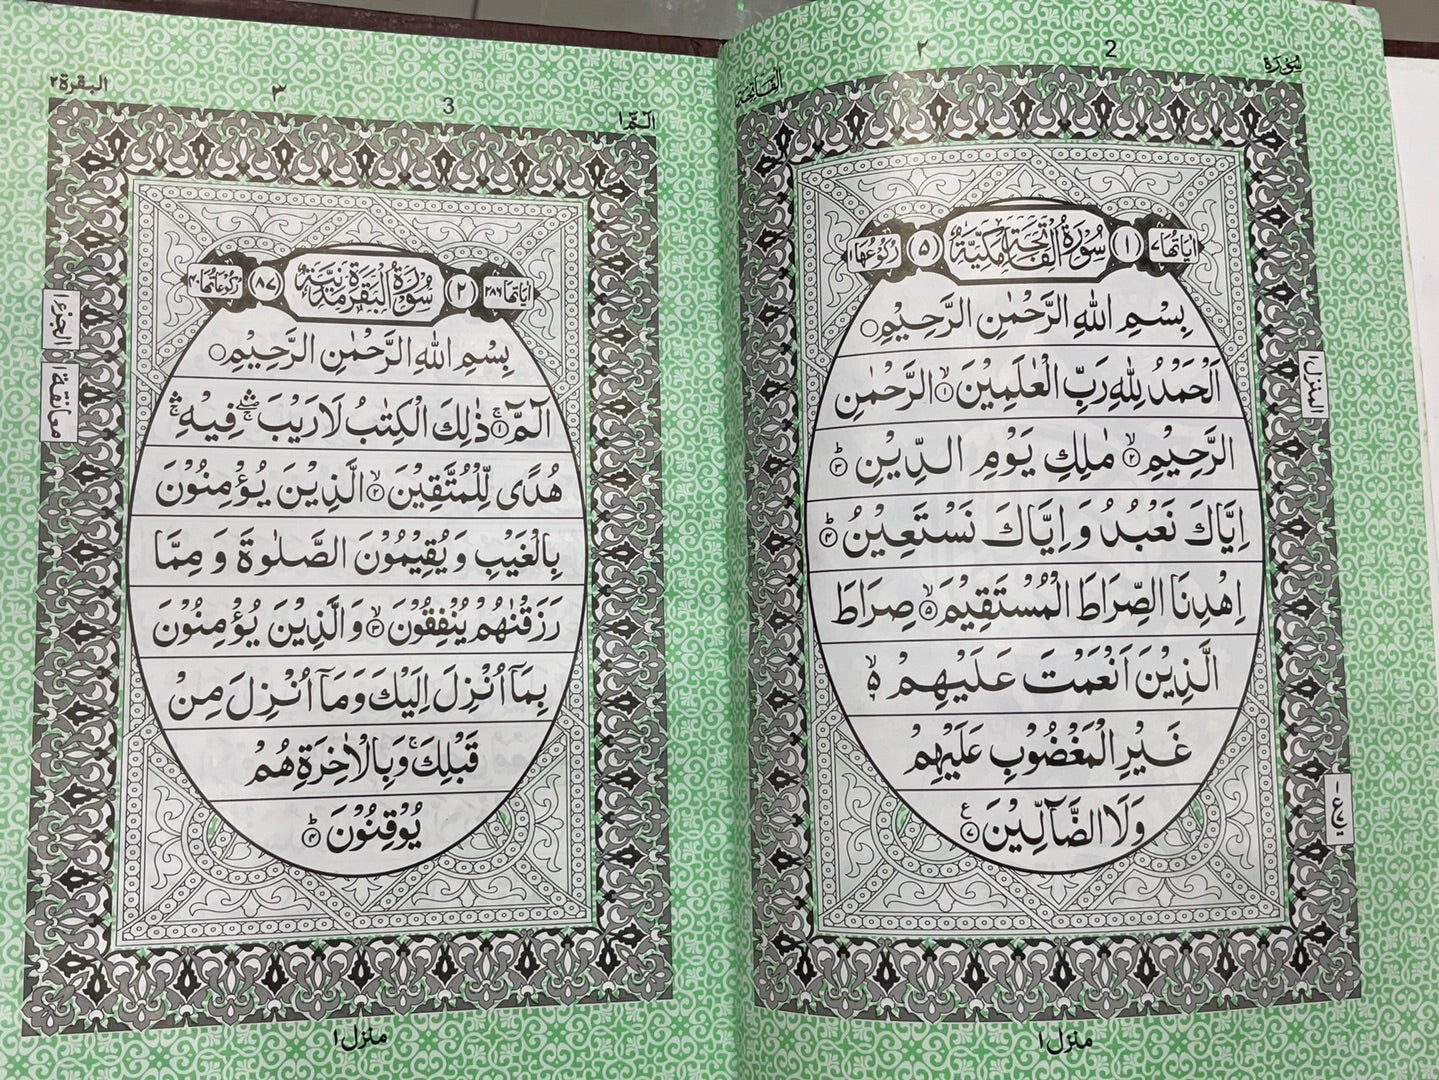 سُورَة
2
٢
الفَاتِحَة
اٰيَاتُهَا ٧
(١) سُوْرَةُ الْفَاتِحَةِ مَكِّيَّةٌ (٥)
رُكُوْعُهَا ١
بِسْمِ اللهِ الرَّحْمٰنِ الرَّحِيْمِ○
اَلْحَمْدُ لِلّٰهِ رَبِّ الْعٰلَمِيْنَ ۙ﴿١﴾ الرَّحْمٰنِ
الرَّحِيْمِ ۙ﴿٢﴾ مٰلِكِ يَوْمِ الدِّيْنِ ؕ﴿٣﴾
اِيَّاكَ نَعْبُدُ وَ اِيَّاكَ نَسْتَعِيْنُ ؕ﴿٤﴾
اِهْدِنَا الصِّرَاطَ الْمُسْتَقِيْمَ ۙ﴿٥﴾ صِرَاطَ
الَّذِيْنَ اَنْعَمْتَ عَلَيْهِمْ ۙ۬ۙ
غَيْرِ الْمَغْضُوْبِ عَلَيْهِمْ
وَلَا الضَّآلِّيْنَ ﴿٧﴾ع
المنزل ١
منزل ١
الٓمّٓ ١
3
٣
البقرة ٢
اٰيَاتُهَا ٢٨٦
(٢) سُوْرَةُ الْبَقَرَةِ مَدَنِيَّةٌ (٨٧)
رُكُوْعَاتُهَا ٤٠
بِسْمِ اللهِ الرَّحْمٰنِ الرَّحِيْمِ○
الٓمّٓ ۚ﴿١﴾ ذٰلِكَ الْكِتٰبُ لَا رَيْبَ ۛۖۚ فِيْهِ ۛۚ
هُدًى لِّلْمُتَّقِيْنَ ۙ﴿٢﴾ الَّذِيْنَ يُؤْمِنُوْنَ
بِالْغَيْبِ وَ يُقِيْمُوْنَ الصَّلٰوةَ وَ مِمَّا
رَزَقْنٰهُمْ يُنْفِقُوْنَ ۙ﴿٣﴾ وَالَّذِيْنَ يُؤْمِنُوْنَ
بِمَآ اُنْزِلَ اِلَيْكَ وَمَآ اُنْزِلَ مِنْ
قَبْلِكَ ۚ وَبِالْاٰخِرَةِ هُمْ
يُوْقِنُوْنَ ؕ﴿٤﴾
الجزء ١
معانقة ١
منزل ١